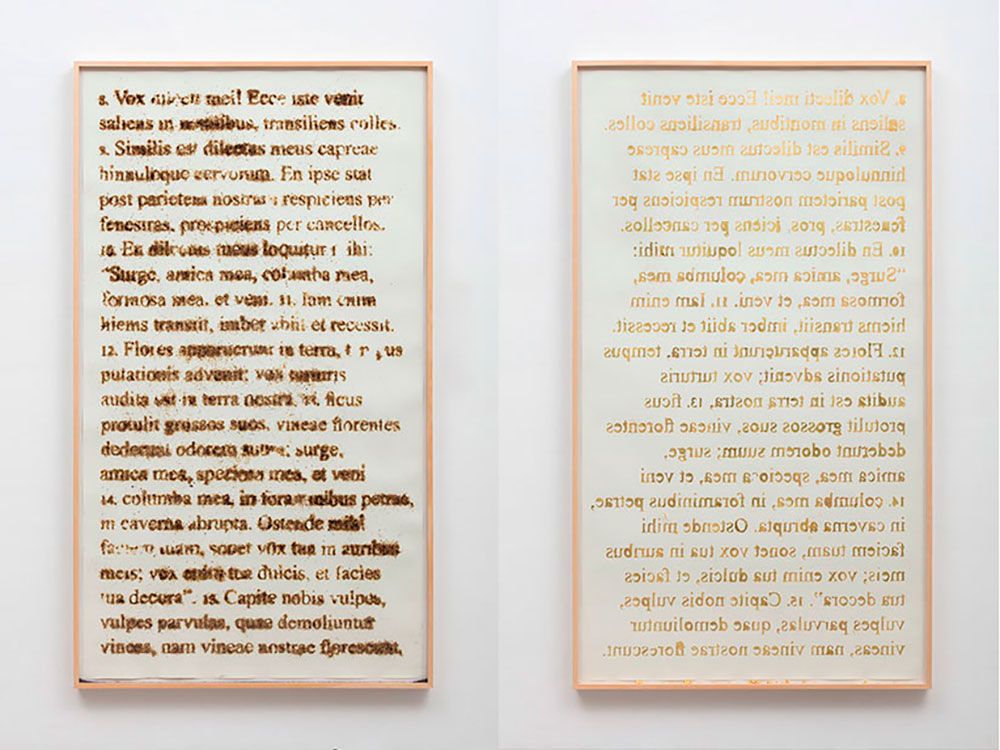 8. Vox meil Ecce iste venit
saliens in montibus, transiliens colles.
9. Similis est dilectus meus capreae
hinnuloque cervorum. En ipse stat
post parietem nostrum respiciens per
fenestras, prospiciens per cancellos.
10. En dilectus meus loquitur ihi:
“Surge, amica mea, columba mea,
formosa mea, et veni. 11. Iam enim
hiems transiit, imber abiit et recessit.
12. Flores apparuerunt in terra, us
putationis advenit; vox turturis
audita est in terra nostra, 13. ficus
protulit grossos suos, vineae florentes
dederunt odorem suum; surge,
amica mea, speciosa mea, et veni
14. columba mea, in foraminibus petrae,
in caverna abrupta. Ostende mihi
faciem tuam, sonet vox tua in auribus
meis; vox enim tua dulcis, et facies
tua decora”. 15. Capite nobis vulpes,
vulpes parvulas, quae demoliuntur
vineas, nam vineae nostrae florescunt.
8. Vox dilecti mei! Ecce iste venit
saliens in montibus, transiliens colles.
9. Similis est dilectus meus capreae
hinnuloque cervorum. En ipse stat
post parietem nostrum respiciens per
fenestras, pros, iciens per cancellos.
10. En dilectus meus loquitur mihi:
“Surge, amica mea, columba mea,
formosa mea, et veni. 11. Iam enim
hiems transiit, imber abiit et recessit.
12. Flores apparuerunt in terra, tempus
putationis advenit; vox turturis
audita est in terra nostra, 13. ficus
protulit grossos suos, vineae florentes
dederunt odorem suum; surge,
amica mea, speciosa mea, et veni
14. columba mea, in foraminibus petrae,
in caverna abrupta. Ostende mihi
faciem tuam, sonet vox tua in auribus
meis; vox enim tua dulcis, et facies
tua decora”. 15. Capite nobis vulpes,
vulpes parvulas, quae demoliuntur
vineas, nam vineae nostrae florescunt.